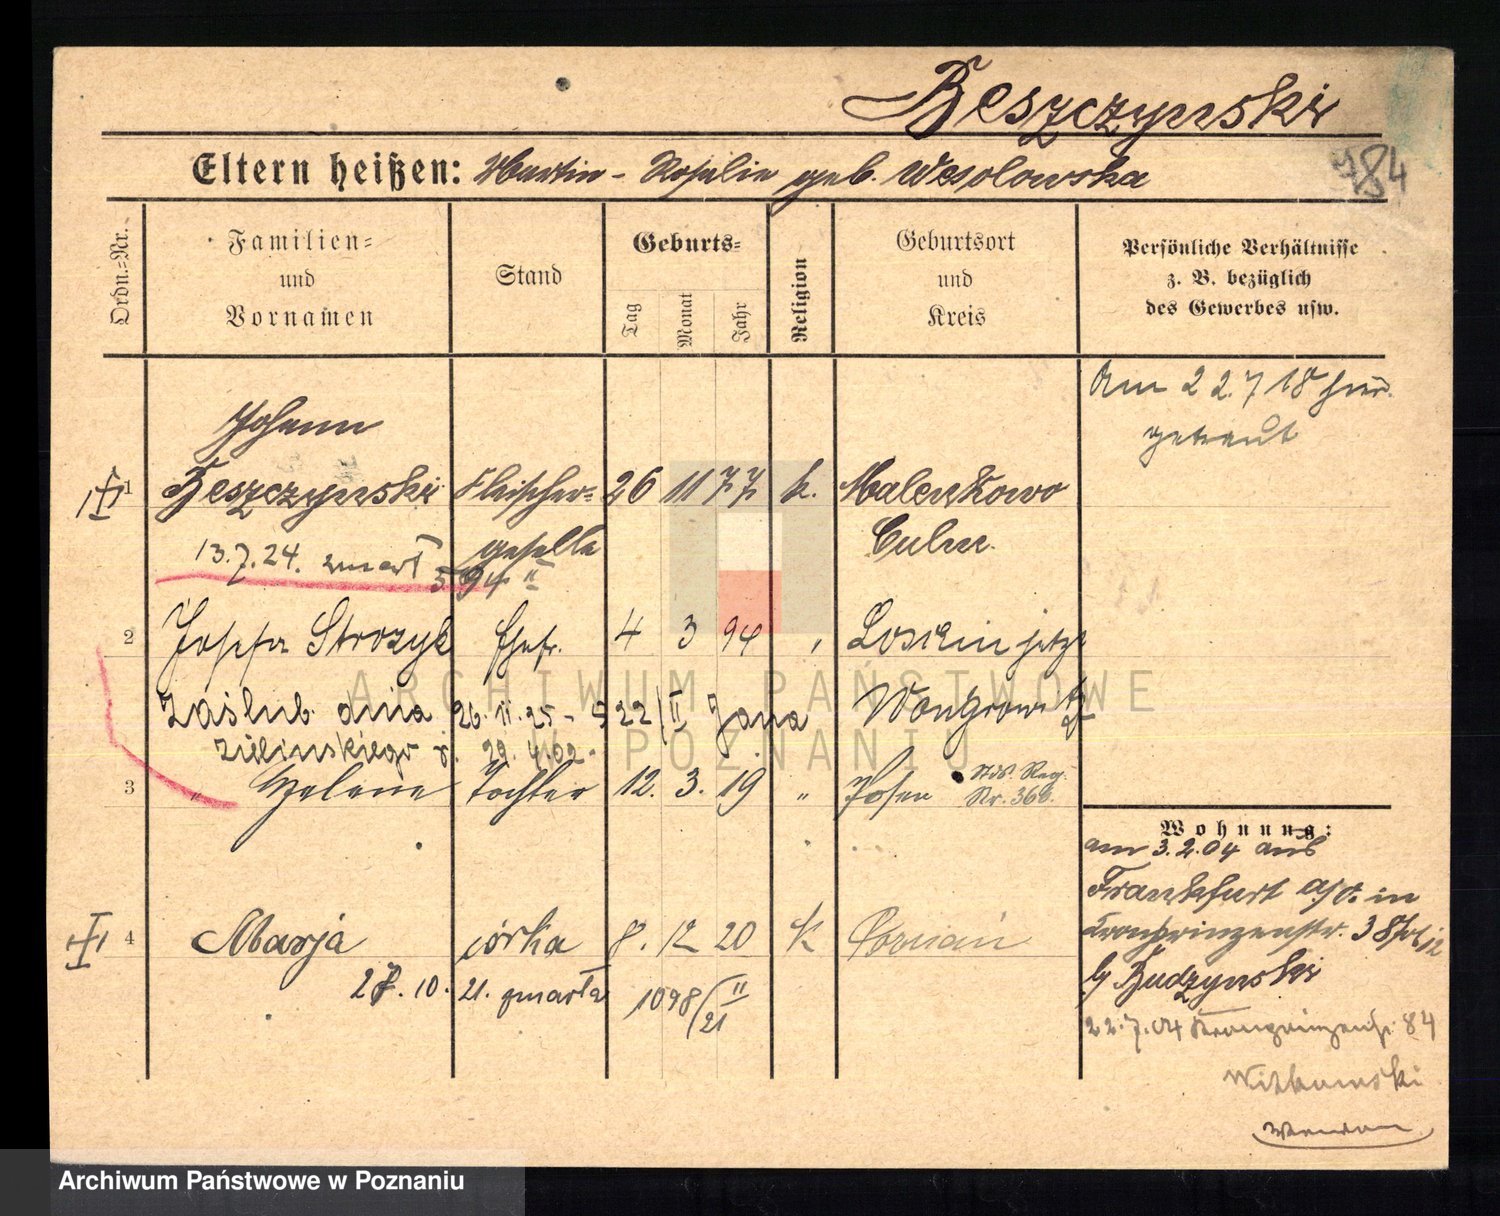 Beszczynski
Eltern heißen: Martin - Rosalie geb. Wesolowska
984
Ordn.=Nr.
Familien=
und
Vornamen
Stand
Geburts=
Tag
Monat
Jahr
Religion
Geburtsort
und
Kreis
Persönliche Verhältnisse
z. B. bezüglich
des Gewerbes usw.
Am 22.7 18 hier
getraut
Johann
1 Beszczynski Fleischer= 26 11 77 k. Malenkowo
geselle Culm.
13.7.24. zmarł 594 II
2 Josefa Strozyk Ehefr. 4 3 94 Loskin jetzt
Wongrowitz
zaślub. dnia 26. 11. 25 - 922/II Jana
Zielinskiego r. 29. 4. 02.
3 " Helene Tochter 12. 3. 19 " Posen Stds. Reg.
Nr. 368.
Wohnung:
am 3.2.04 aus
Frankfurt a/O. in
Kronprinzenstr. 38
b/ Budzynski
22.7.04 Kronprinzenstr. 84
Witkowski
wenden
4 Marja córka 8. 12 20 k Poznań
27. 10. 21. zmarła 1098/II 21
ARCHIWUM PAŃSTWOWE
W POZNANIU
Archiwum Państwowe w Poznaniu